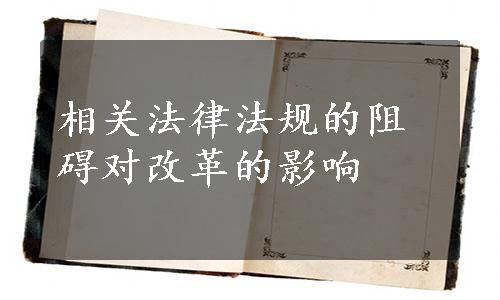 相关法律法规的阻
碍对改革的影响